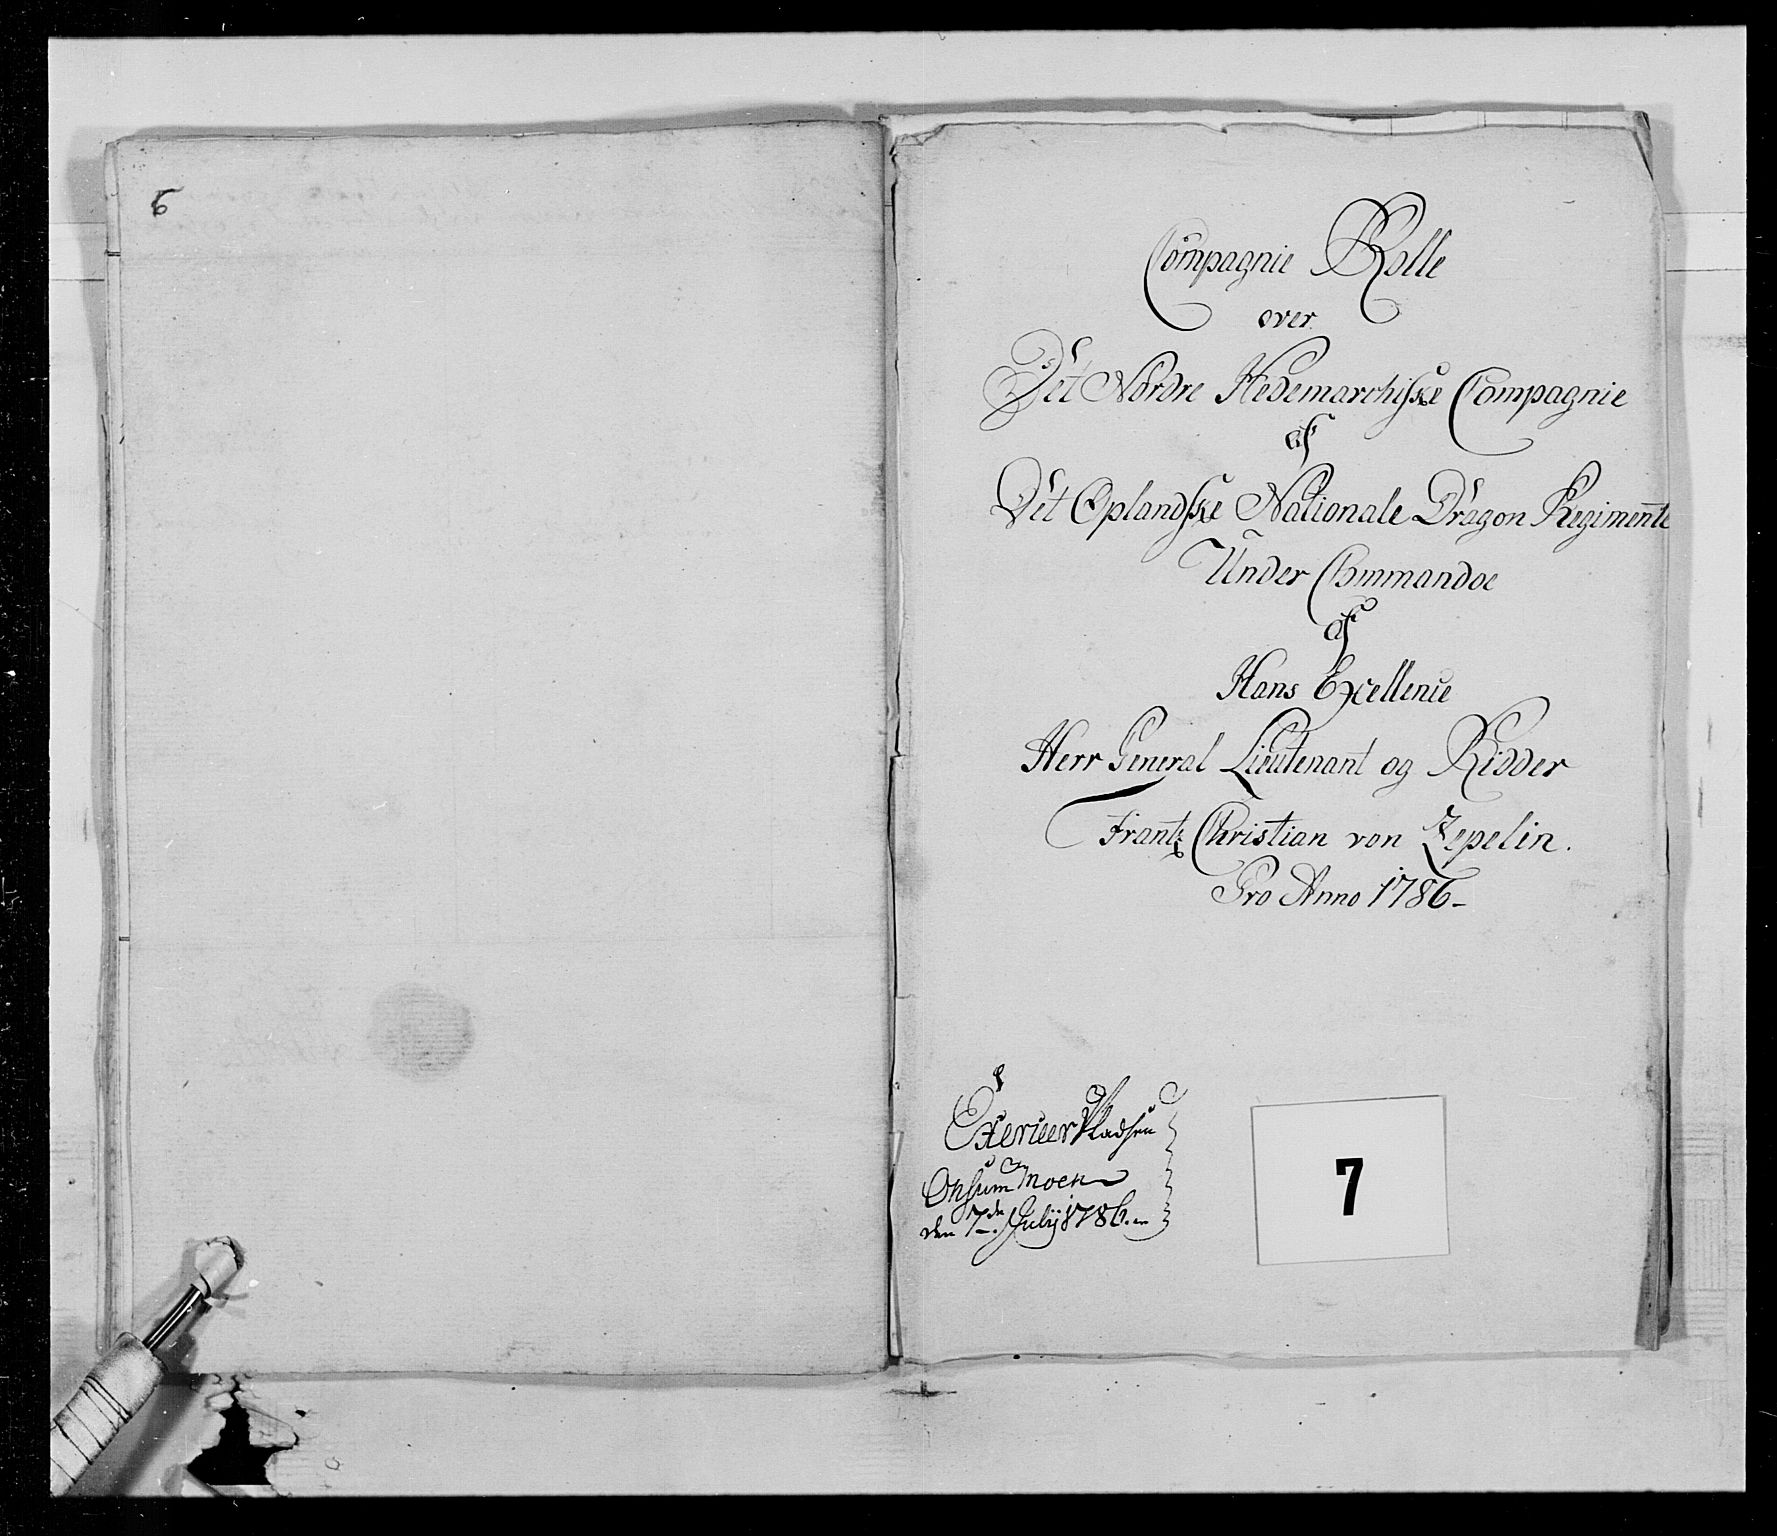 6
Compagnie Rolle
over
Det Nordre Hedemarchiske Compagnie
af
Det Oplandske Nationale Dragon Regimente
Under Commandoe
af
Hans Excellence
Herr General Lieutenant og Ridder
Frantz Christian von Zepelin.
Pro Anno 1786-
Exercer Pladsen
Onsum Moen
den 7de July 1786.
7